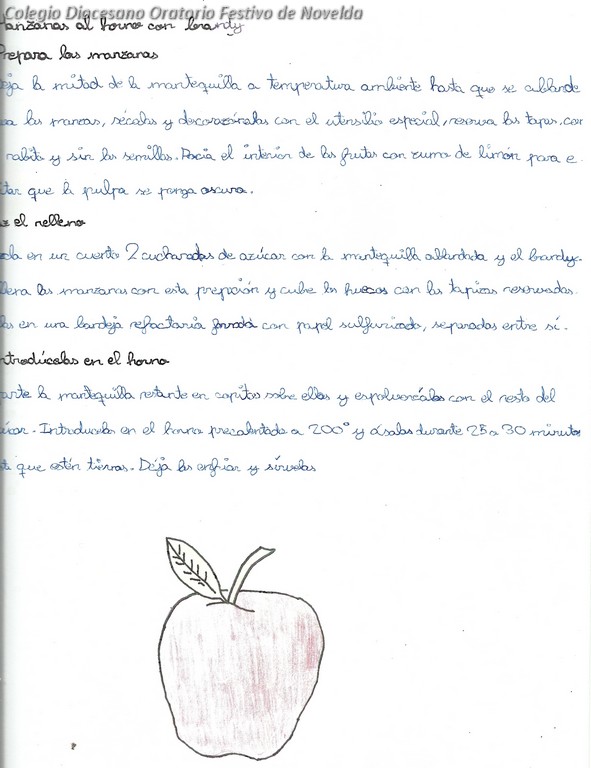 Colegio Diocesano Oratorio Festivo de Novelda
anzanas al horno con brandy
Prepara las manzanas
eja la mitad de la mantequilla a temperatura ambiente hasta que se ablande
va las manzas, sécalas y descorazónalas con el utensilio especial, reserva las tapas, con
rabito y sin las semillas. Rocía el interior de las frutas con zumo de limón para e
itar que la pulpa se ponga oscura.
z el relleno
cla en un cuento 2 cucharadas de azúcar con la mantequilla ablandada y el brandy.
llena las manzanas con esta prepción y cubre los huecos con las tapitas reservadas.
las en una bandeja refractaria forrada con papel sulfurizado, separadas entre sí.
ntrodúcelas en el horno
arte la mantequilla restante en copitos sobre ellas y espolvoréalas con el resto del
úcar. Introducelas en el horno precalentado a 200° y ásalas durante 25 a 30 minutos
sta que estén tiernas. Déja las enfriar y sírvelas